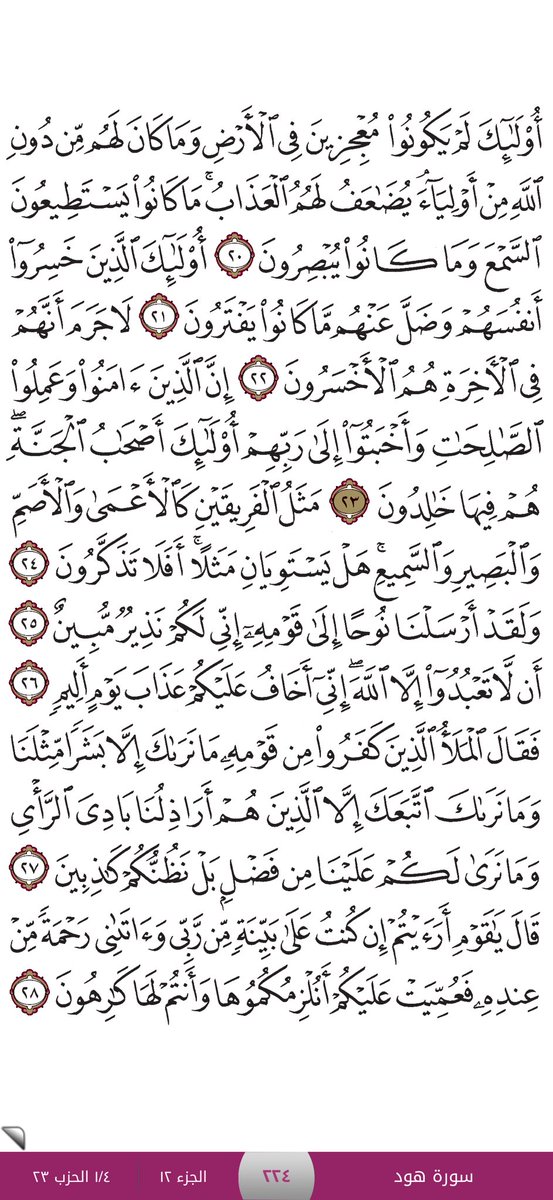 أُوْلَٰٓئِكَ لَمۡ يَكُونُواْ مُعۡجِزِينَ فِي ٱلۡأَرۡضِ وَمَا كَانَ لَهُم مِّن دُونِ
ٱللَّهِ مِنۡ أَوۡلِيَآءَۘ يُضَٰعَفُ لَهُمُ ٱلۡعَذَابُۚ مَا كَانُواْ يَسۡتَطِيعُونَ
ٱلسَّمۡعَ وَمَا كَانُواْ يُبۡصِرُونَ ٢٠ أُوْلَٰٓئِكَ ٱلَّذِينَ خَسِرُوٓاْ
أَنفُسَهُمۡ وَضَلَّ عَنۡهُم مَّا كَانُواْ يَفۡتَرُونَ ٢١ لَا جَرَمَ أَنَّهُمۡ
فِي ٱلۡأٓخِرَةِ هُمُ ٱلۡأَخۡسَرُونَ ٢٢ إِنَّ ٱلَّذِينَ ءَامَنُواْ وَعَمِلُواْ
ٱلصَّٰلِحَٰتِ وَأَخۡبَتُوٓاْ إِلَىٰ رَبِّهِمۡ أُوْلَٰٓئِكَ أَصۡحَٰبُ ٱلۡجَنَّةِۖ
هُمۡ فِيهَا خَٰلِدُونَ ٢٣ مَثَلُ ٱلۡفَرِيقَيۡنِ كَٱلۡأَعۡمَىٰ وَٱلۡأَصَمِّ
وَٱلۡبَصِيرِ وَٱلسَّمِيعِۚ هَلۡ يَسۡتَوِيَانِ مَثَلًاۚ أَفَلَا تَذَكَّرُونَ ٢٤
وَلَقَدۡ أَرۡسَلۡنَا نُوحًا إِلَىٰ قَوۡمِهِۦٓ إِنِّي لَكُمۡ نَذِيرٞ مُّبِينٌ ٢٥
أَن لَّا تَعۡبُدُوٓاْ إِلَّا ٱللَّهَۖ إِنِّيٓ أَخَافُ عَلَيۡكُمۡ عَذَابَ يَوۡمٍ أَلِيمٖ ٢٦
فَقَالَ ٱلۡمَلَأُ ٱلَّذِينَ كَفَرُواْ مِن قَوۡمِهِۦ مَا نَرَىٰكَ إِلَّا بَشَرٗا مِّثۡلَنَا
وَمَا نَرَىٰكَ ٱتَّبَعَكَ إِلَّا ٱلَّذِينَ هُمۡ أَرَاذِلُنَا بَادِيَ ٱلرَّأۡيِ
وَمَا نَرَىٰ لَكُمۡ عَلَيۡنَا مِن فَضۡلِۭ بَلۡ نَظُنُّكُمۡ كَٰذِبِينَ ٢٧
قَالَ يَٰقَوۡمِ أَرَءَيۡتُمۡ إِن كُنتُ عَلَىٰ بَيِّنَةٖ مِّن رَّبِّي وَءَاتَىٰنِي رَحۡمَةٗ مِّنۡ
عِندِهِۦ فَعُمِّيَتۡ عَلَيۡكُمۡ أَنُلۡزِمُكُمُوهَا وَأَنتُمۡ لَهَا كَٰرِهُونَ ٢٨
سورة هود ٢٢٤ الجزء ١٢ ١/٤ الحزب ٢٣